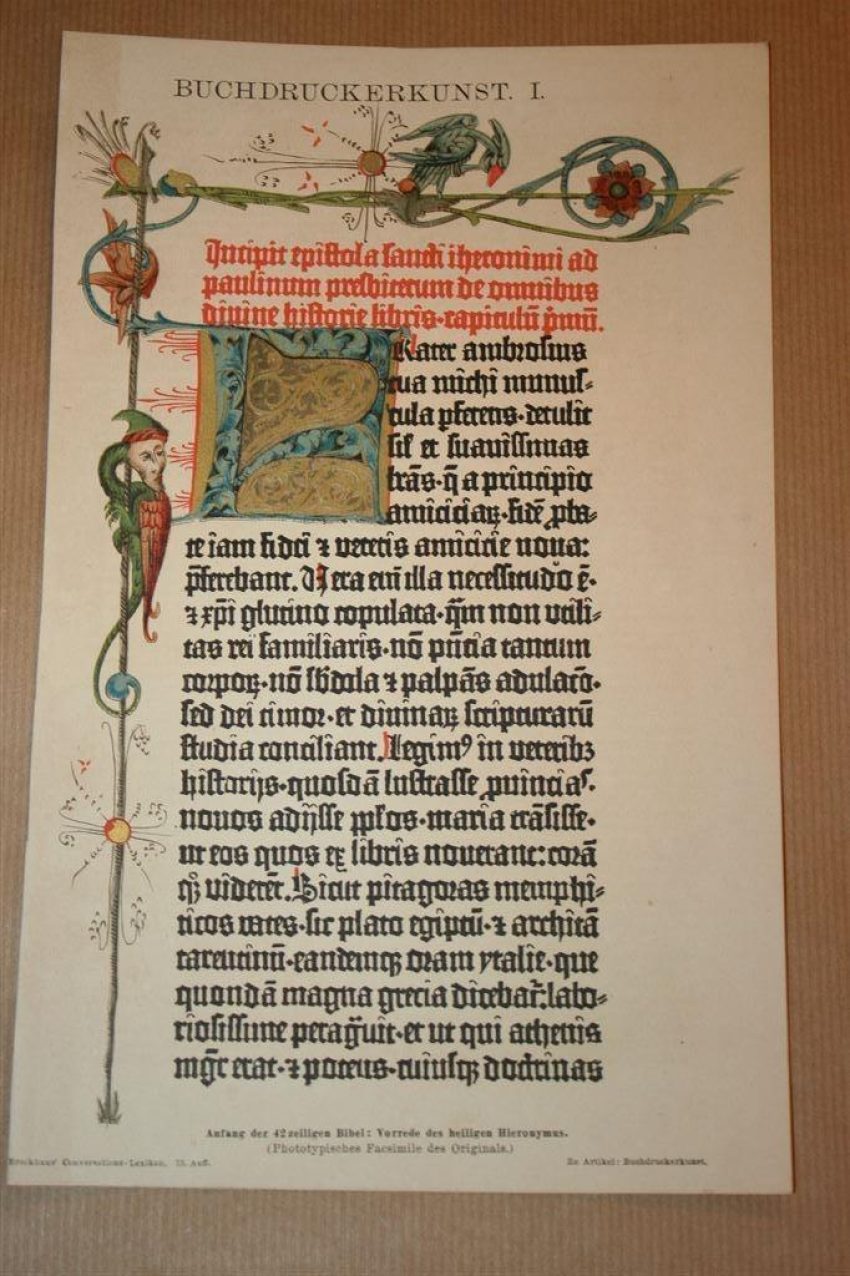 BUCHDRUCKERKUNST. I.
Incipit epistola sancti iheronimi ad
paulinum presbiterum de omnibus
divine historie libris·capitulū p̄mū.
Frater ambrosius
tua michi munus-
cula pferens·detulit
sil̄ et suavissimas
lrās·q̄ a principio
amiciciaꝝ·fidē ꝓba-
te iam fidei ⁊ veteris amicicie noua:
p̄ferebant. Vera eni illa necessitudo ē·
⁊ xp̄i glutino copulata·q̄m non vtili-
tas rei familiaris·nō p̄ncia tantum
corporꝝ·nō sb̄dola ⁊ palpās adulacō·
sed dei timor·et divinaꝝ scripturarū
studia conciliant. Legimꝰ in veteribꝫ
historijs·quosdā lustrasse ꝓuincias·
nouos adijsse ppl̄os·maria trāsisse·
ut eos quos ex libris nouerant: corā
qꝫ viderēt. Sicut pitagoras memphi-
ticos vates·sic plato egiptū·⁊ architā
tarentinū·eandemqꝫ oram ytalie·que
quondā magna grecia dicebat̄: labo-
riosissime peragͣuit·et ut qui athenis
mgr̄ erat·⁊ potens·cuiusqꝫ doctrinas
Anfang der 42zeiligen Bibel: Vorrede des heiligen Hieronymus.
(Phototypisches Facsimile des Originals.)
Brockhaus' Conversations-Lexikon. 13. Aufl.
Zu Artikel: Buchdruckerkunst.